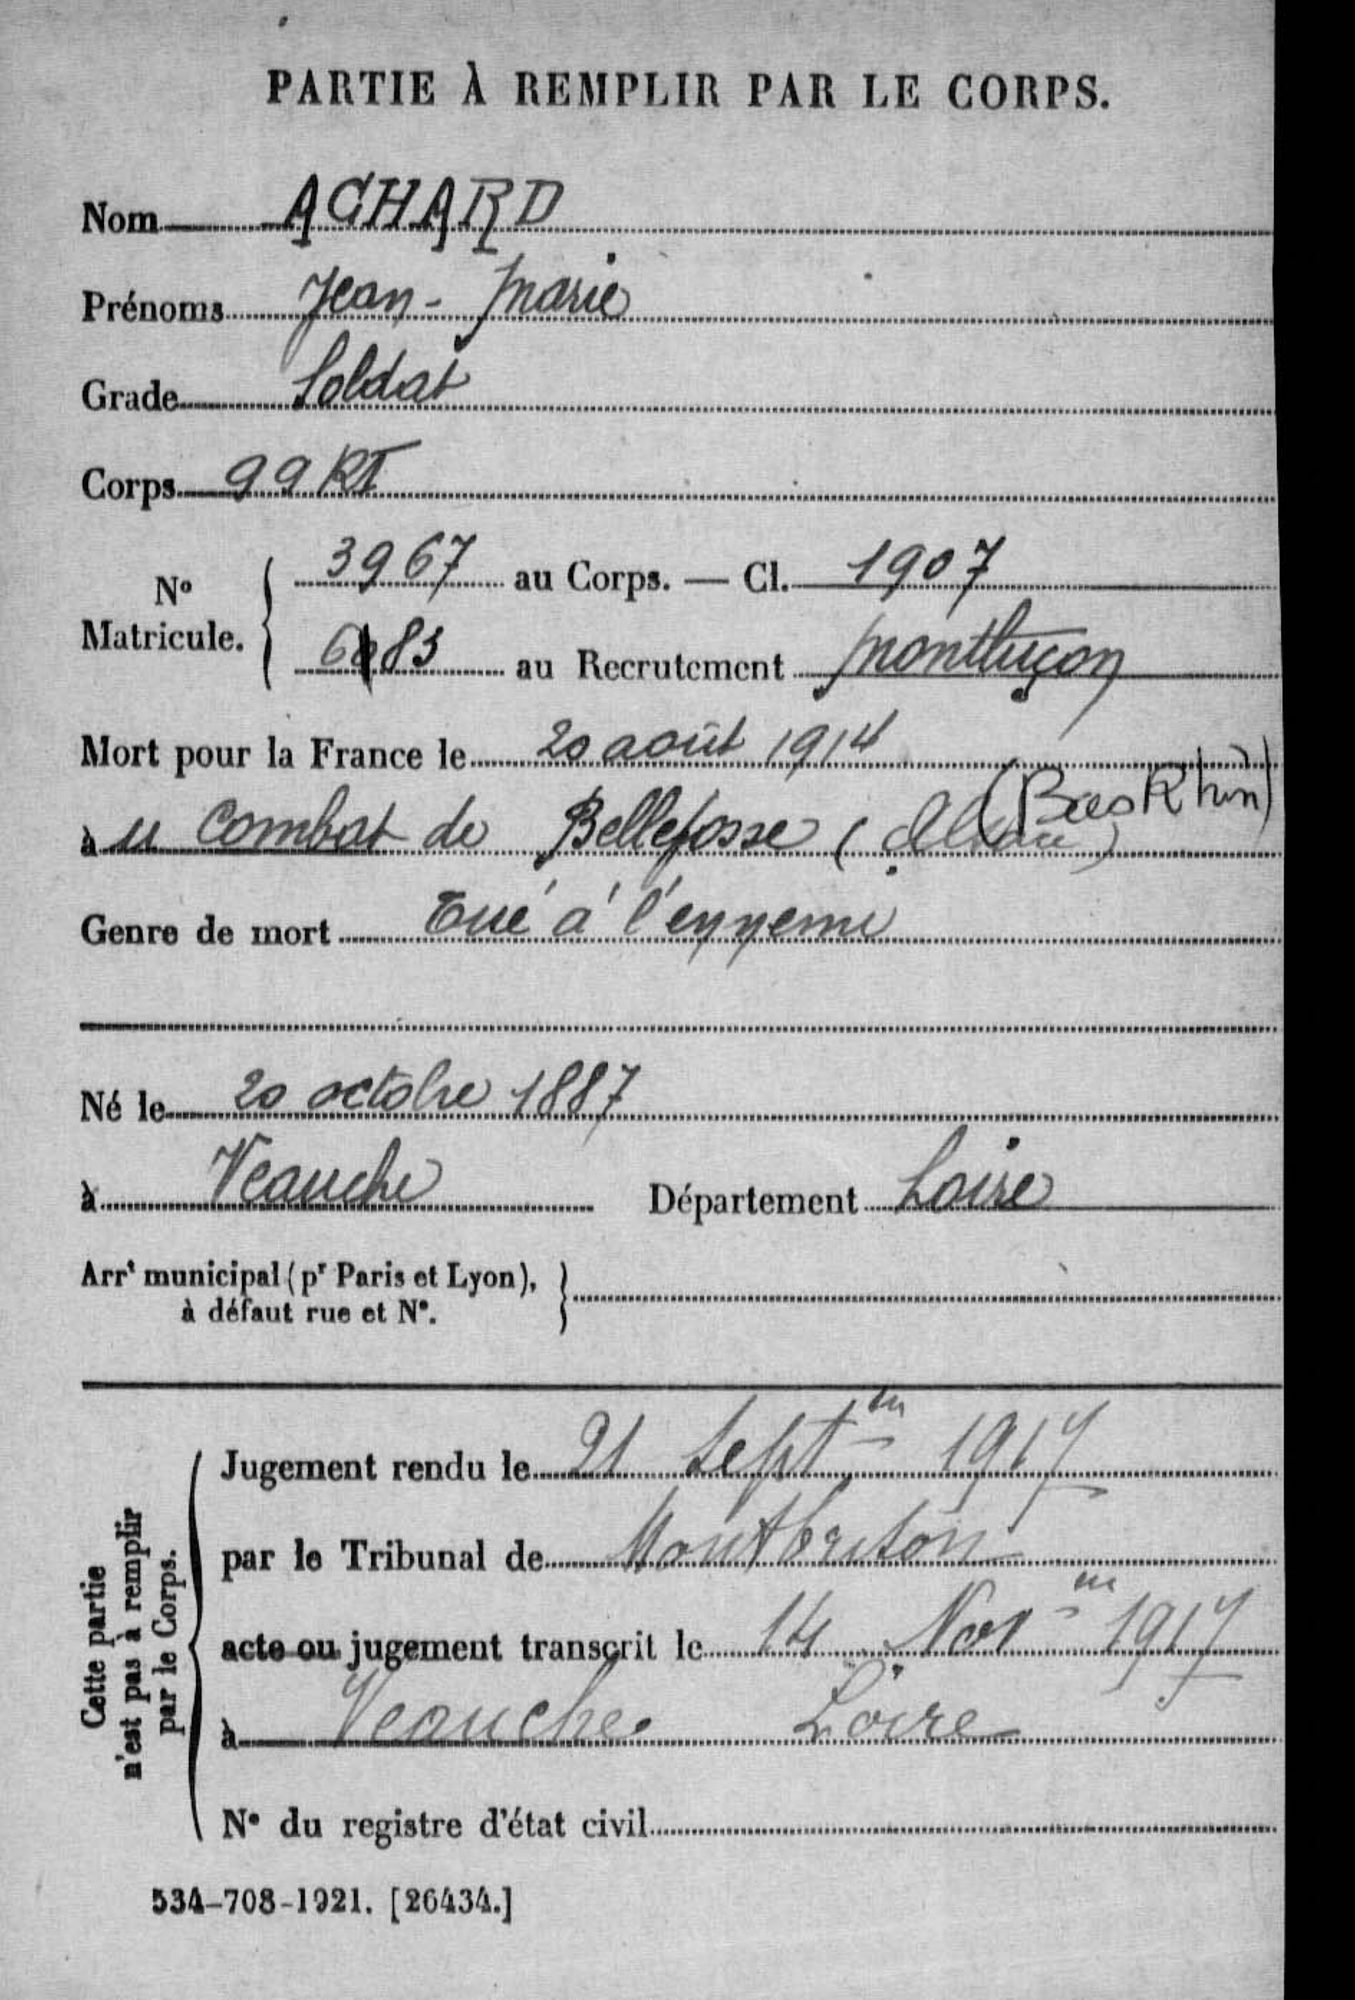 PARTIE À REMPLIR PAR LE CORPS.
Nom ACHARD
Prénoms Jean-Marie
Grade Soldat
Corps 99 RI
N° Matricule. 3967 au Corps. — Cl. 1907
au Recrutement Montluçon
Mort pour la France le 20 août 1914
(Bas Rhin)
à u combat de Bellefosse (Alsace)
Genre de mort tué à l'ennemi
Né le 20 octobre 1887
à Veauche Département Loire
Arrt municipal (pr Paris et Lyon),
à défaut rue et N°.
Cette partie
n'est pas à remplir
par le Corps.
Jugement rendu le 21 Septm 1917
par le Tribunal de Montbrison
acte ou jugement transcrit le 14 Novm 1917
à Veauche. Loire
N° du registre d'état civil
534-708-1921. [26434.]